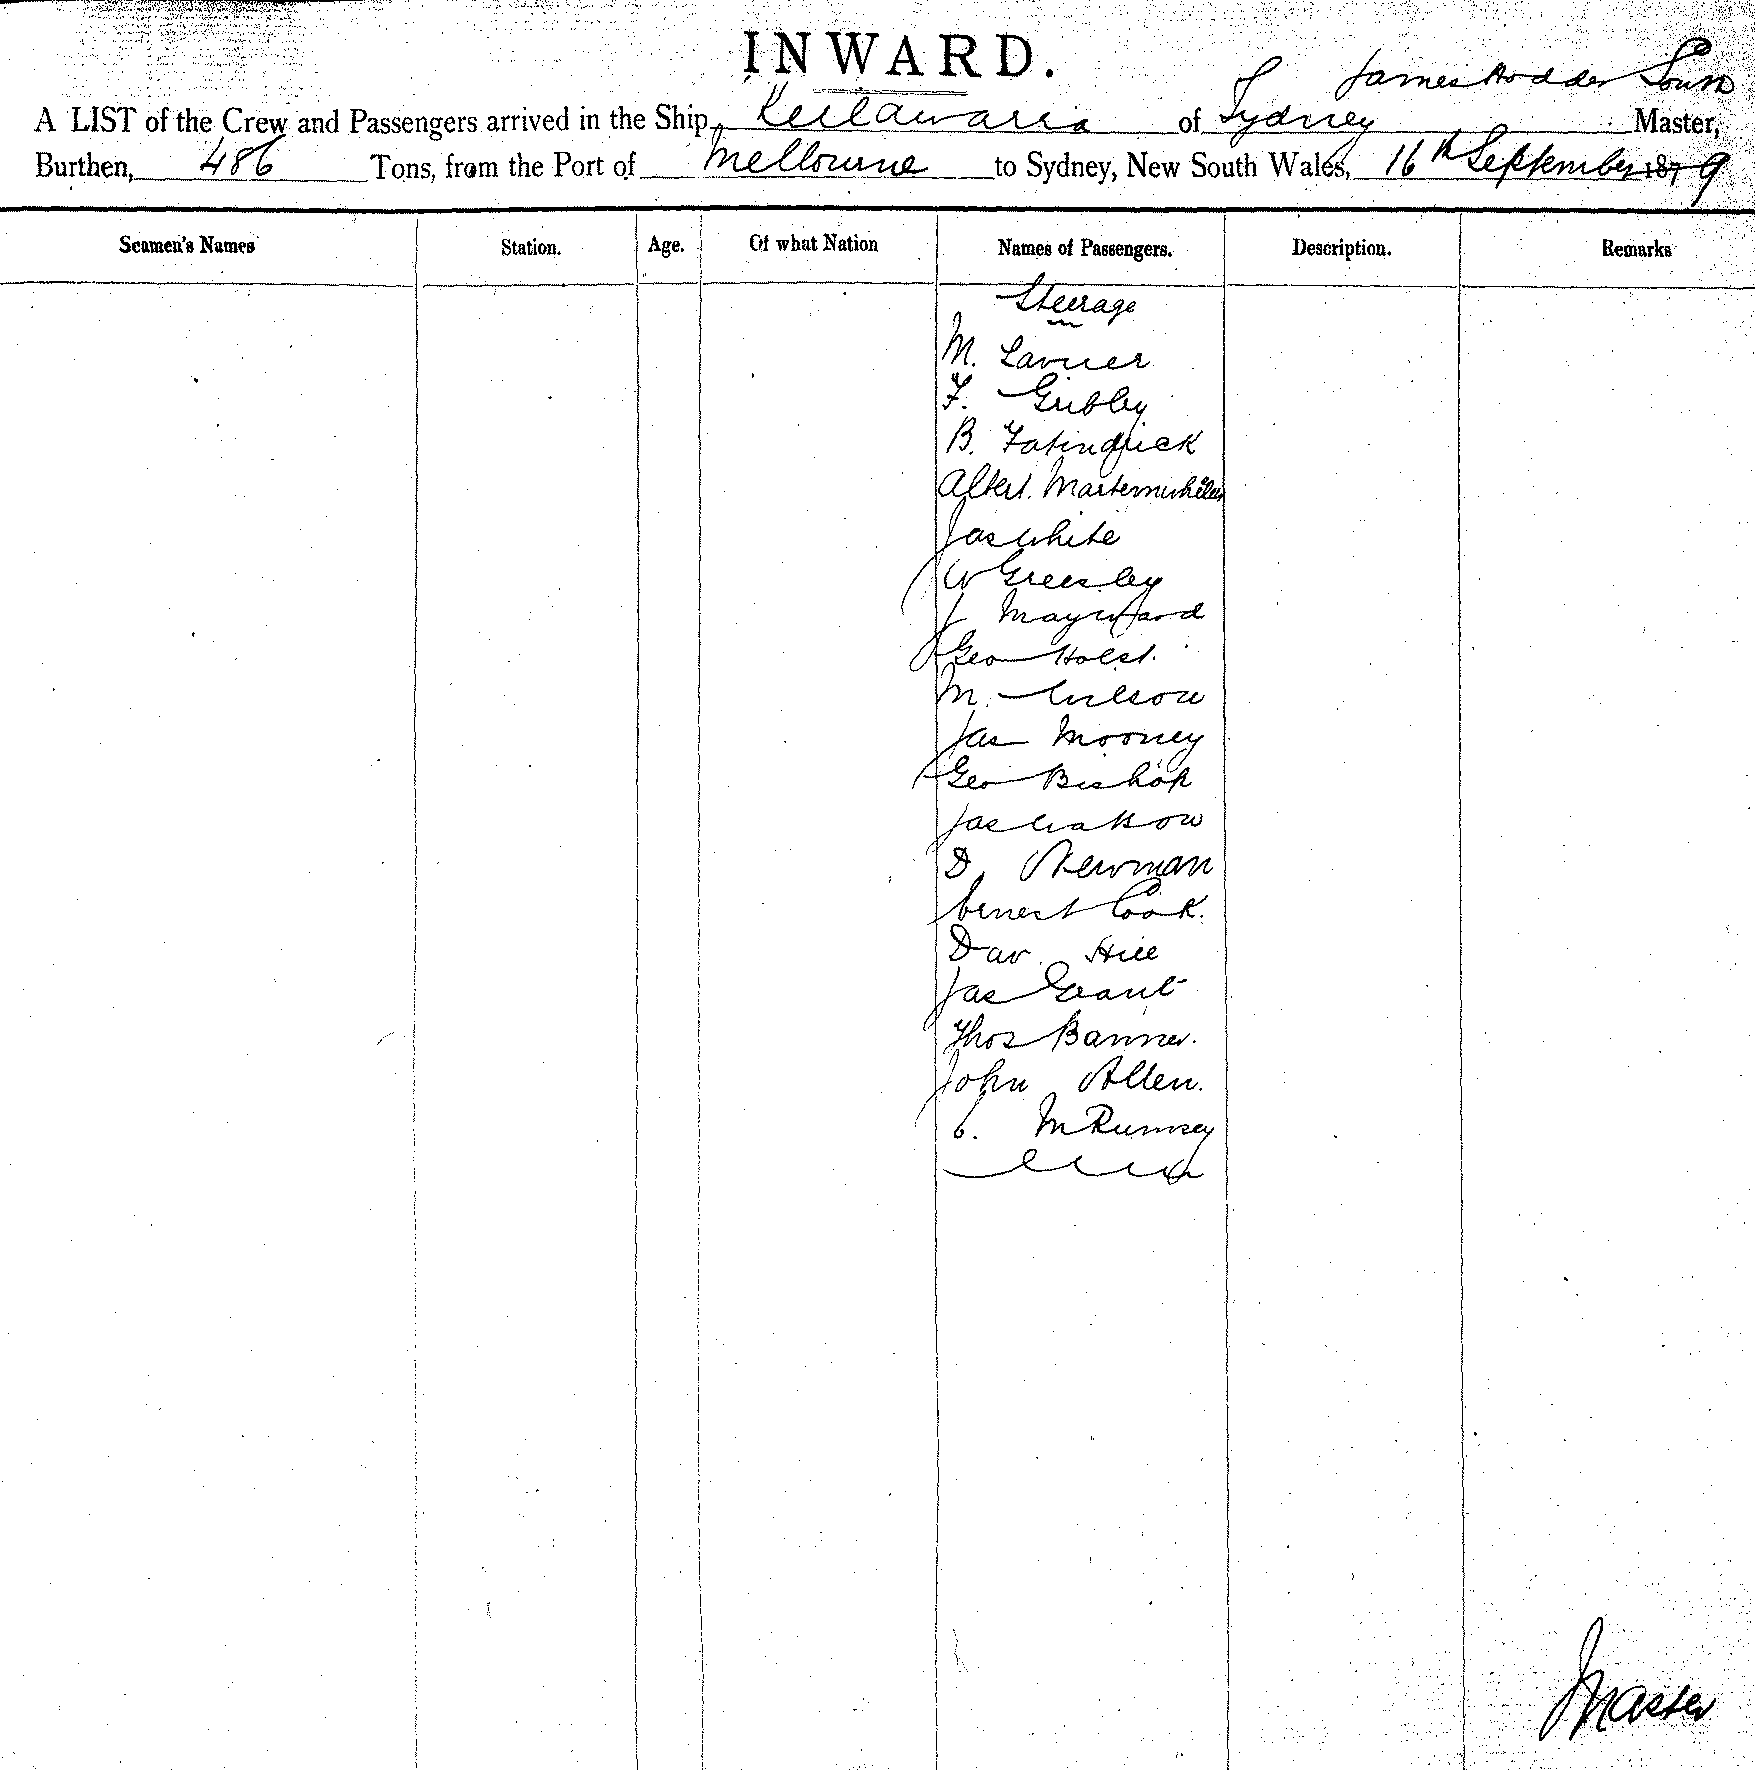 INWARD.
James Hodder
A LIST of the Crew and Passengers arrived in the Ship Keilawarra of Sydney Master,
Burthen, 486 Tons, from the Port of Melbourne to Sydney, New South Wales, 16th September 1879
Seamen's Names Station. Age. Of what Nation Names of Passengers. Description. Remarks
Steerage
M.
F. Gribley
B.
Albert
Jas White
W Greesley
J Maynard
Geo Holst.
M. Wilson
Jas Mooney
Geo Bishop
Jas Watson
D. Newman
Ernest Cook.
Dav. Hill
Jas Grant
Thos Banner.
John Allen.
McRumsey
Master